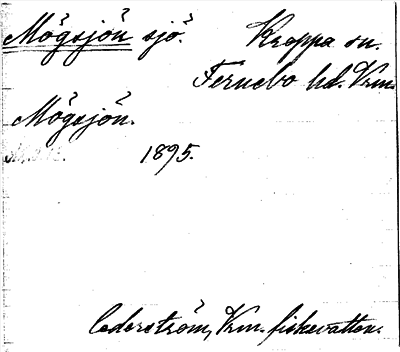 Mögsjön sjö. Kroppa sn.
Fernebo hd. Vrm.
Mögsjön.
1895.
Cederström, Vrm. fiskevatten.